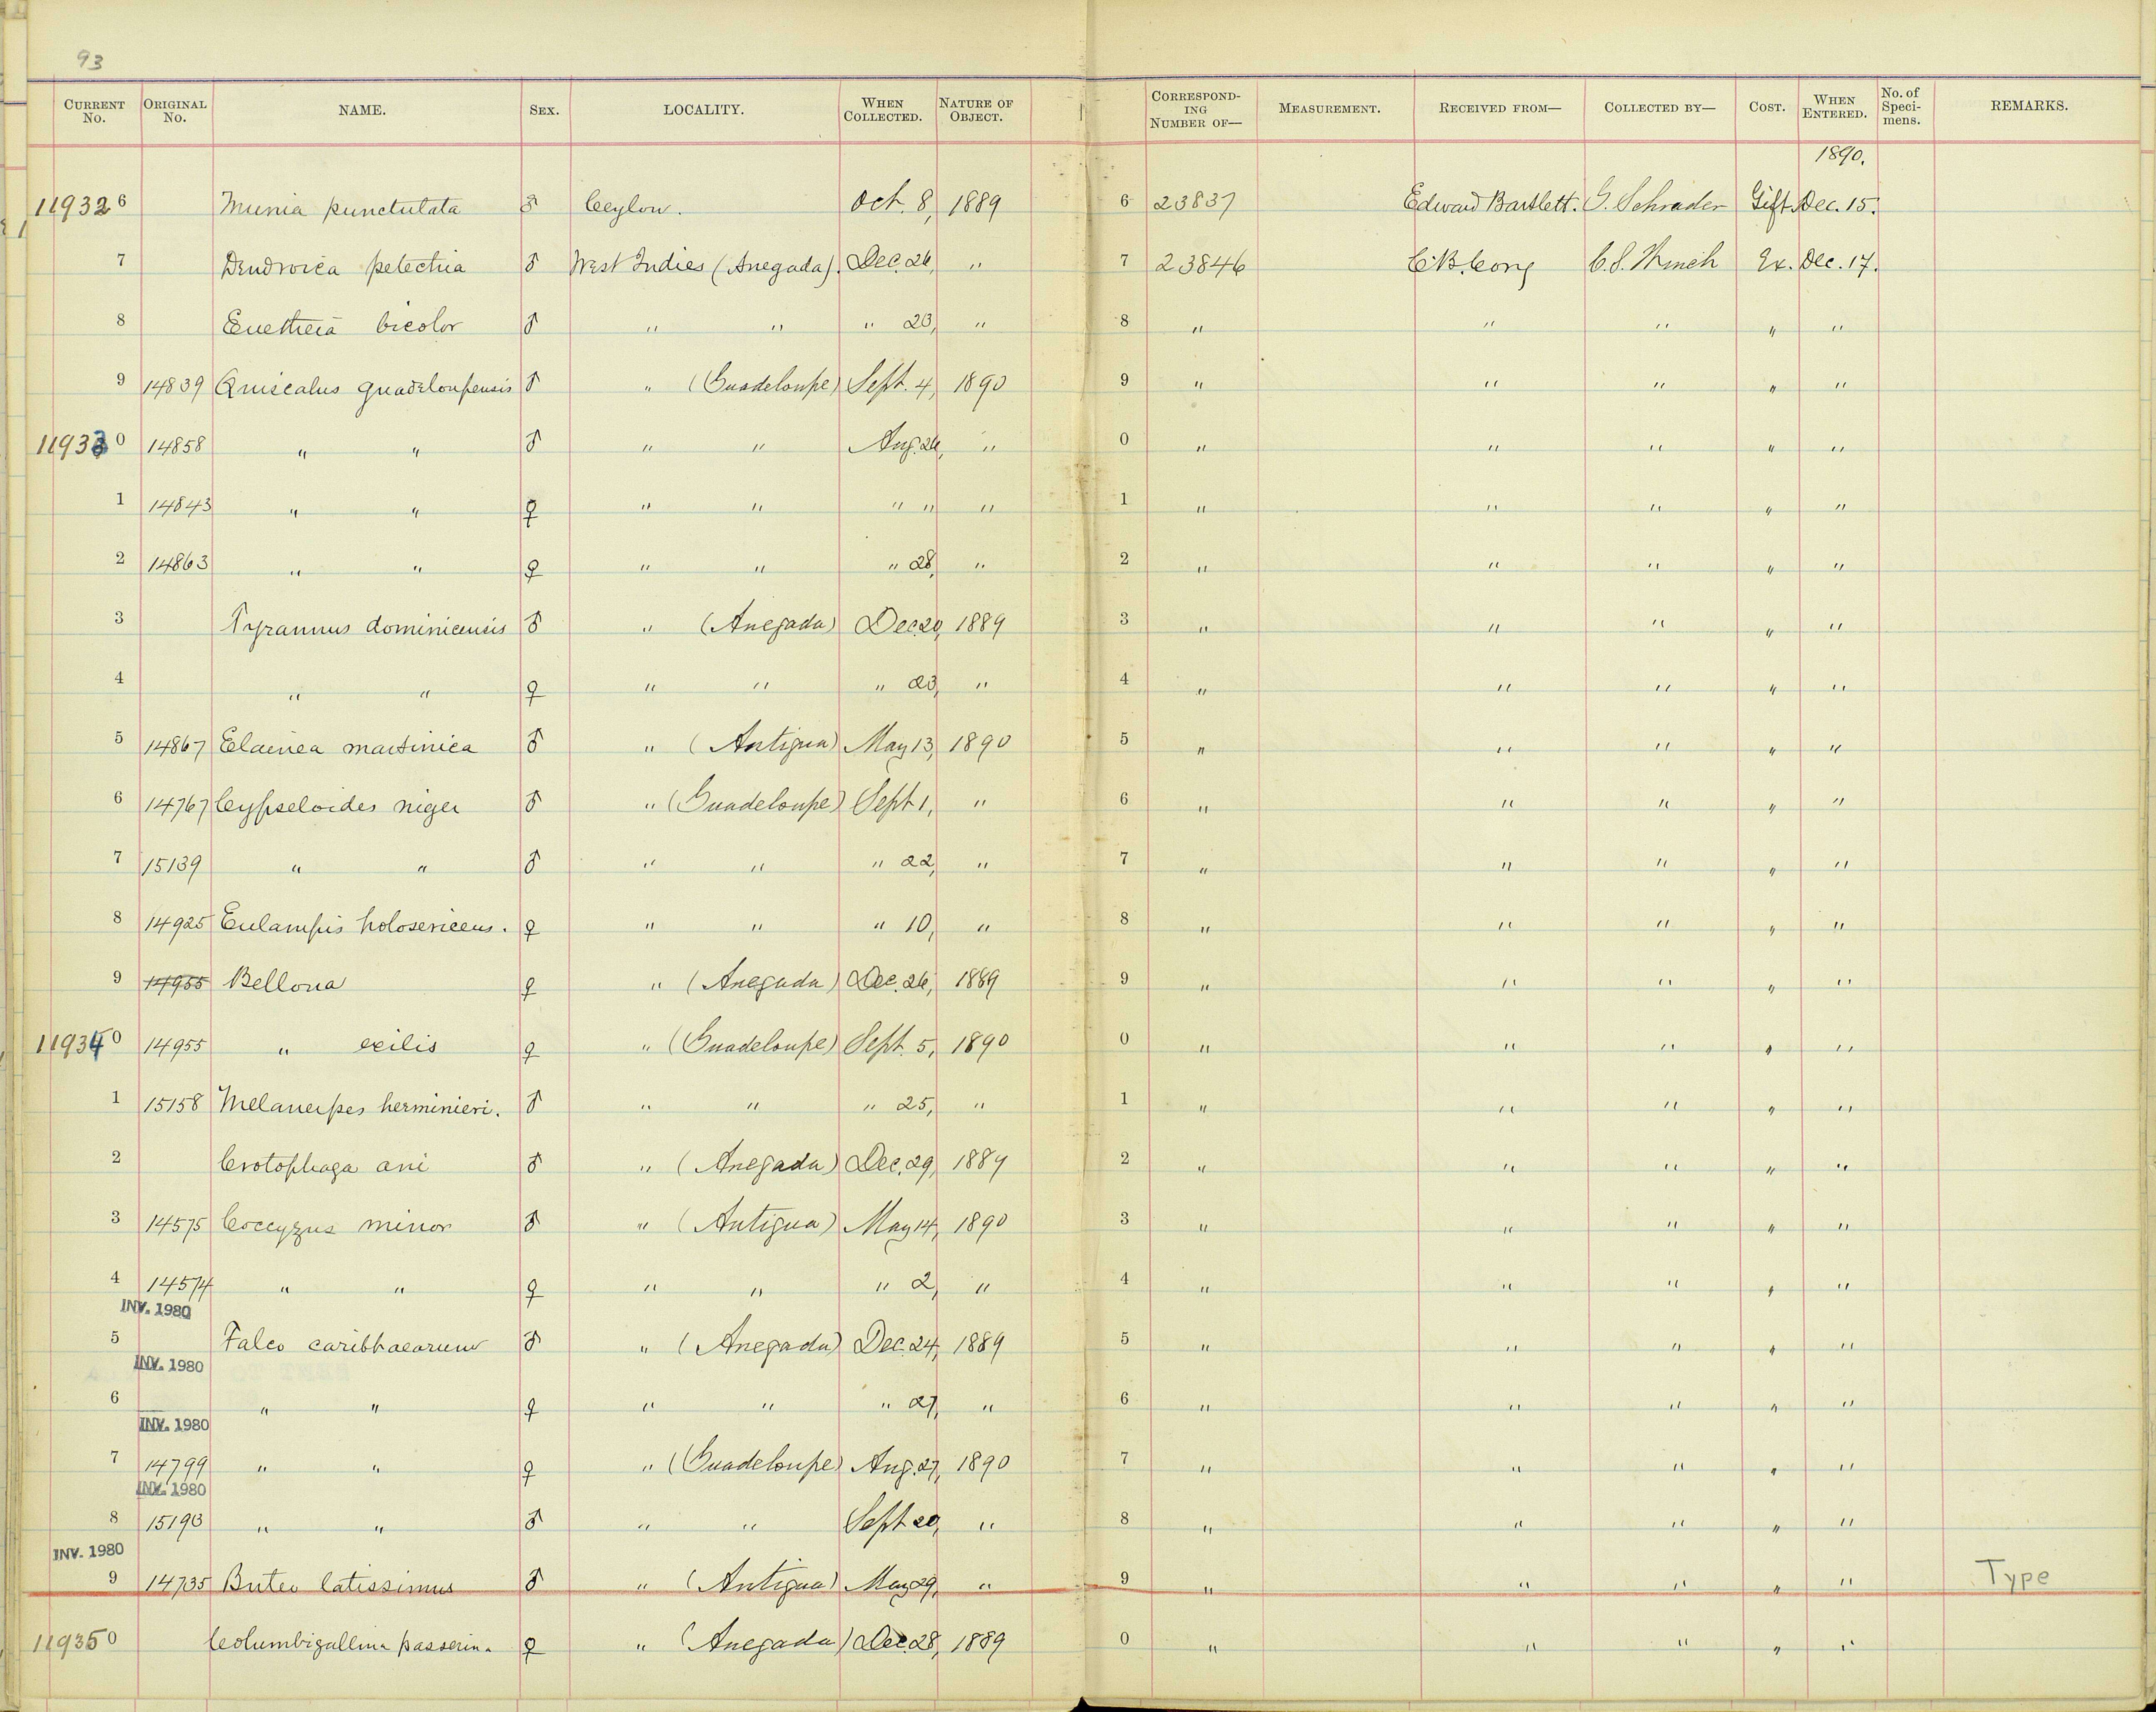 93
CURRENT No. ORIGINAL No. NAME. SEX. LOCALITY. WHEN COLLECTED. NATURE OF OBJECT. CORRESPONDING NUMBER OF— MEASUREMENT. RECEIVED FROM— COLLECTED BY— COST. WHEN ENTERED. No. of Specimens. REMARKS.
1890.
119326 Munia punctulata ♂ Ceylon. Oct. 8, 1889 6 23837 Edward Bartlett. G. Schrader Gift. Dec. 15.
7 Dendroica petechia ♂ West Indies (Anegada). Dec. 26, " 7 23846 C.B. Cory C.S. Winch Ex. Dec. 17.
8 Euetheia bicolor ♂ " " " 23, " 8 " " " " "
9 14839 Quiscalus guadeloupensis ♂ " (Guadeloupe) Sept. 4, 1890 9 " " " " "
119330 14858 " " ♂ " " Aug. 26, " 0 " " " " "
1 14843 " " ♀ " " " " " 1 " " " " "
2 14863 " " ♀ " " " 28, " 2 " " " " "
3 Tyrannus dominicensis ♂ " (Anegada) Dec. 20, 1889 3 " " " " "
4 " " ♀ " " " 23, " 4 " " " " "
5 14867 Elainea martinica ♂ " (Antigua) May 13, 1890 5 " " " " "
6 14767 Cypseloides niger ♂ " (Guadeloupe) Sept 1, " 6 " " " " "
7 15139 " " ♂ " " " 22, " 7 " " " " "
8 14925 Eulampis holosericeus. ♀ " " " 10, " 8 " " " " "
9 14955 Bellona ♀ " (Anegada) Dec. 26, 1889 9 " " " " "
119340 14955 " exilis ♀ " (Guadeloupe) Sept. 5, 1890 0 " " " " "
1 15158 Melanerpes herminieri. ♂ " " " 25, " 1 " " " " "
2 Crotophaga ani ♂ " (Anegada) Dec. 29, 1889 2 " " " " "
3 14575 Coccyzus minor ♂ " (Antigua) May 14, 1890 3 " " " " "
4 14574 " " ♀ " " " 2, " 4 " " " " "
INV. 1980
5 Falco caribbaearum ♂ " (Anegada) Dec. 24, 1889 5 " " " " "
INV. 1980
6 " " ♀ " " " 27, " 6 " " " " "
INV. 1980
7 14799 " " ♀ " (Guadeloupe) Aug. 27, 1890 7 " " " " "
INV. 1980
8 15193 " " ♂ " " Sept 20, " 8 " " " " "
INV. 1980
9 14735 Buteo latissimus ♂ " (Antigua) May 29, " 9 " " " " " Type
119350 Columbigallina passerina ♀ " (Anegada) Dec. 28, 1889 0 " " " " "